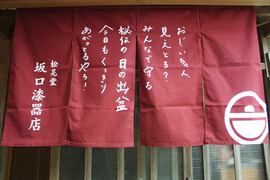 おじいちゃん
見えとる?
みんなで守る
秘伝の日の出盆
今日もくっきり
あがっとるやろ!
松花堂
坂口漆器店